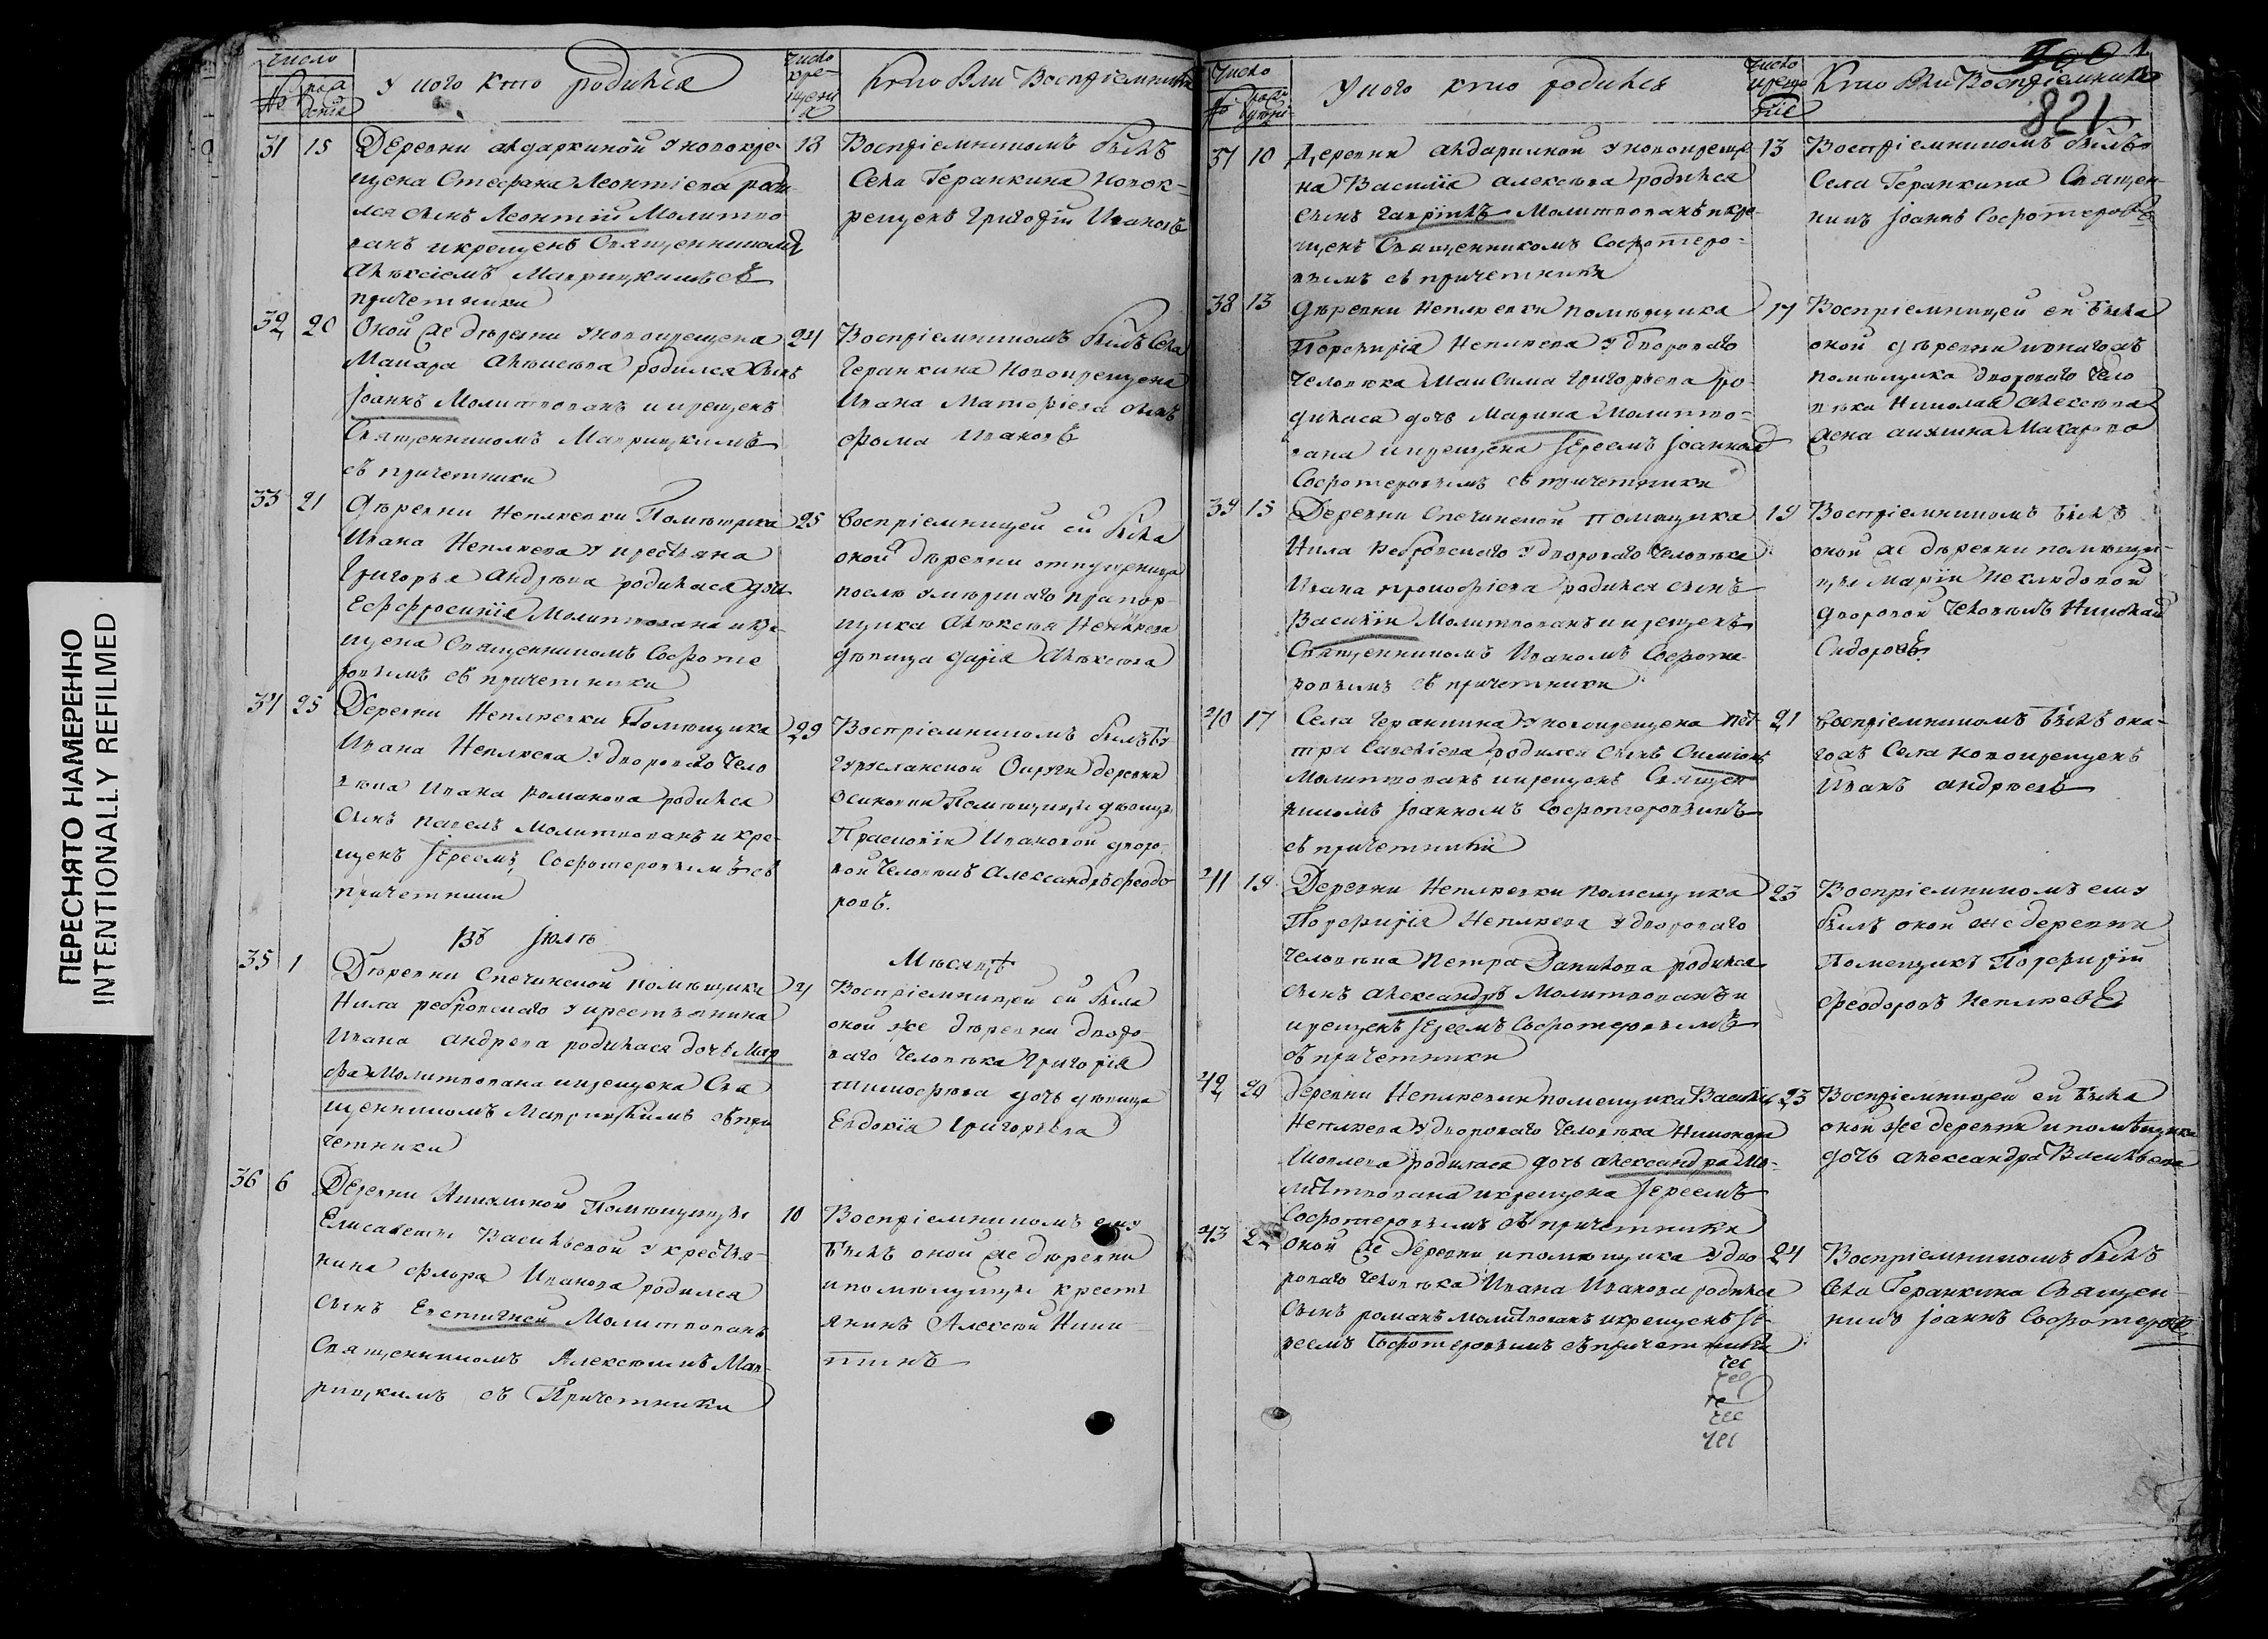 ПЕРЕСНЯТО НАМЕРЕННО
INTENTIONALLY REFILMED
Число
У кого кто родился
Число кре-
щенія
Кто Были Воспріемники
№
31 15 Деревни Андаркиной у новокре-
щена Стефана Леонтіева роди-
лся сынъ Леонтій Молитво
ванъ и крещенъ Священникомъ
Алексіемъ Маврицкимъ съ
причетники
18 Воспріемникомъ былъ
Села Геранкина новок-
рещенъ Григорій Ивановъ
32 20 Оной же дѣревни у новокрещена
Макара Алексѣева родился сынъ
Іоаннъ Молитвованъ и крещенъ
Священникомъ Маврицкимъ
съ причетники
24 Воспріемникомъ былъ Села
Геранкина Новокрещена
Ивана Матфіева сынъ
Фома Ивановъ
33 21 Дѣревни Неплюевки Помѣщика
Ивана Неплюева у крестьяна
Григорья Андрѣева родилася дочь
Ефросинія Молитвована и кре-
щена Священникомъ Софоте
ровымъ съ причетники
25 Воспріемницей ей была
оной дѣревни отпущеница
послѣ умершаго прапор-
щика Алексѣя Неплюева
дѣвица Дарія Алексѣева
34 25 Деревни Неплюевки Помѣщика
Ивана Неплюева у двороваго чело
вѣка Ивана Романова родился
сынъ Павелъ Молитвованъ и кре-
щенъ Іереемъ Софотеровымъ съ
причетники
29 Воспріемникомъ былъ Бу-
гурусланской Округи деревни
Осиновки Помѣщицы дѣвицы
Прасковіи Ивановой дворо-
вой Человѣкъ Александръ Феодо-
ровъ.
Въ Іюлѣ
Мѣсяцѣ
35 1 Дѣревни Спечинской помѣщика
Нила Ребровскаго у крестьянина
Ивана Андрева родилася дочь Мар
фа Молитвована и крещена Свя
щенникомъ Маврицкимъ съ при
четники
4 Воспріемницей ей была
оной же дѣревни дворо-
ваго Человѣка Григорія
Тимофѣева дочь дѣвица
Евдокія Григорьева
36 6 Деревни Помѣщицы
Елисаветы Васильевой у крестья-
нина Флора Иванова родился
сынъ Евстигней Молитвованъ
Священникомъ Алексѣемъ Мав-
рицкимъ съ Причетники
10 Воспріемникомъ ему
былъ оной же дѣревни
и помѣщицы крестъ
янинъ Алексей Ники
тинъ
Число
У кого кто родился
Число креще
ніе
Кто Были Воспріемники
821
37 10 Деревни Андаркиной у новокреще-
на Василія Алексѣева родился
сынъ Гавріилъ Молитвованъ и кре-
щенъ Священникомъ Софотеро-
вымъ съ причетники
13 Воспріемникомъ былъ
Села Геранкина Священ-
никъ Іоаннъ Софотеровъ
38 13 Дѣревни Неплюевки помѣщика
Порфирія Неплюева у двороваго
человѣка Максима Григорьева ро-
дилася дочь Марина Молитво-
вана и крещена Іереемъ Іоанномъ
Софотеровымъ съ причетники
17 Воспріемницей ей была
оной дѣревни и онагожъ
помѣщика двороваго чело
вѣка Николая Алексѣева
жена Акулина Макарова
39 15 Деревни Спечинской помѣщика
Нила Ребровскаго у двороваго человѣка
Ивана Прокофіева родился сынъ
Василій Молитвованъ и крещенъ
Священникомъ Иваномъ Софоте-
ровымъ съ причетники
19 Воспріемникомъ былъ
оной же дѣревни помѣщи-
цы Маріи Неклюдовой
дворовой человѣкъ Николай
Сидоровъ.
40 17 Села Геранкина у новокрещена Пе-
тра Савельева родился сынъ Симіонъ
Молитвованъ и крещенъ Священ
никомъ Іоанномъ Софотеровымъ
съ причетники
21 Воспріемникомъ былъ она-
гожъ Села новокрещенъ
Иванъ Андрѣевъ
41 19 Деревни Неплюевки Помещика
Порфирія Неплюева у двороваго
человѣка Петра Данилова родился
сынъ Александръ Молитвованъ и
крещенъ Іереемъ Софотеровымъ
съ причетники
23 Воспріемникомъ ему
былъ оной же деревни
Помещикъ Порфирій
Феодоровъ Неплюевъ
42 20 Деревни Неплюевки помещика Василія
Неплюева у двороваго человѣка Никонора
Іовлева родилася дочь Александра Мо-
литвована и крещена Іереемъ
Софотеровымъ съ причетники
23 Воспріемницей ей была
оной же деревни и помѣщика
дочь Александра Васильева
43 Оной же деревни и помѣщика у дво
роваго человѣка Ивана Иванова родился
сынъ Романъ Молитвованъ и крещенъ Іе-
реемъ Софотеровымъ съ причетники
24 Воспріемникомъ былъ
Села Геранкина Священ-
никъ Іоаннъ Софотеровъ